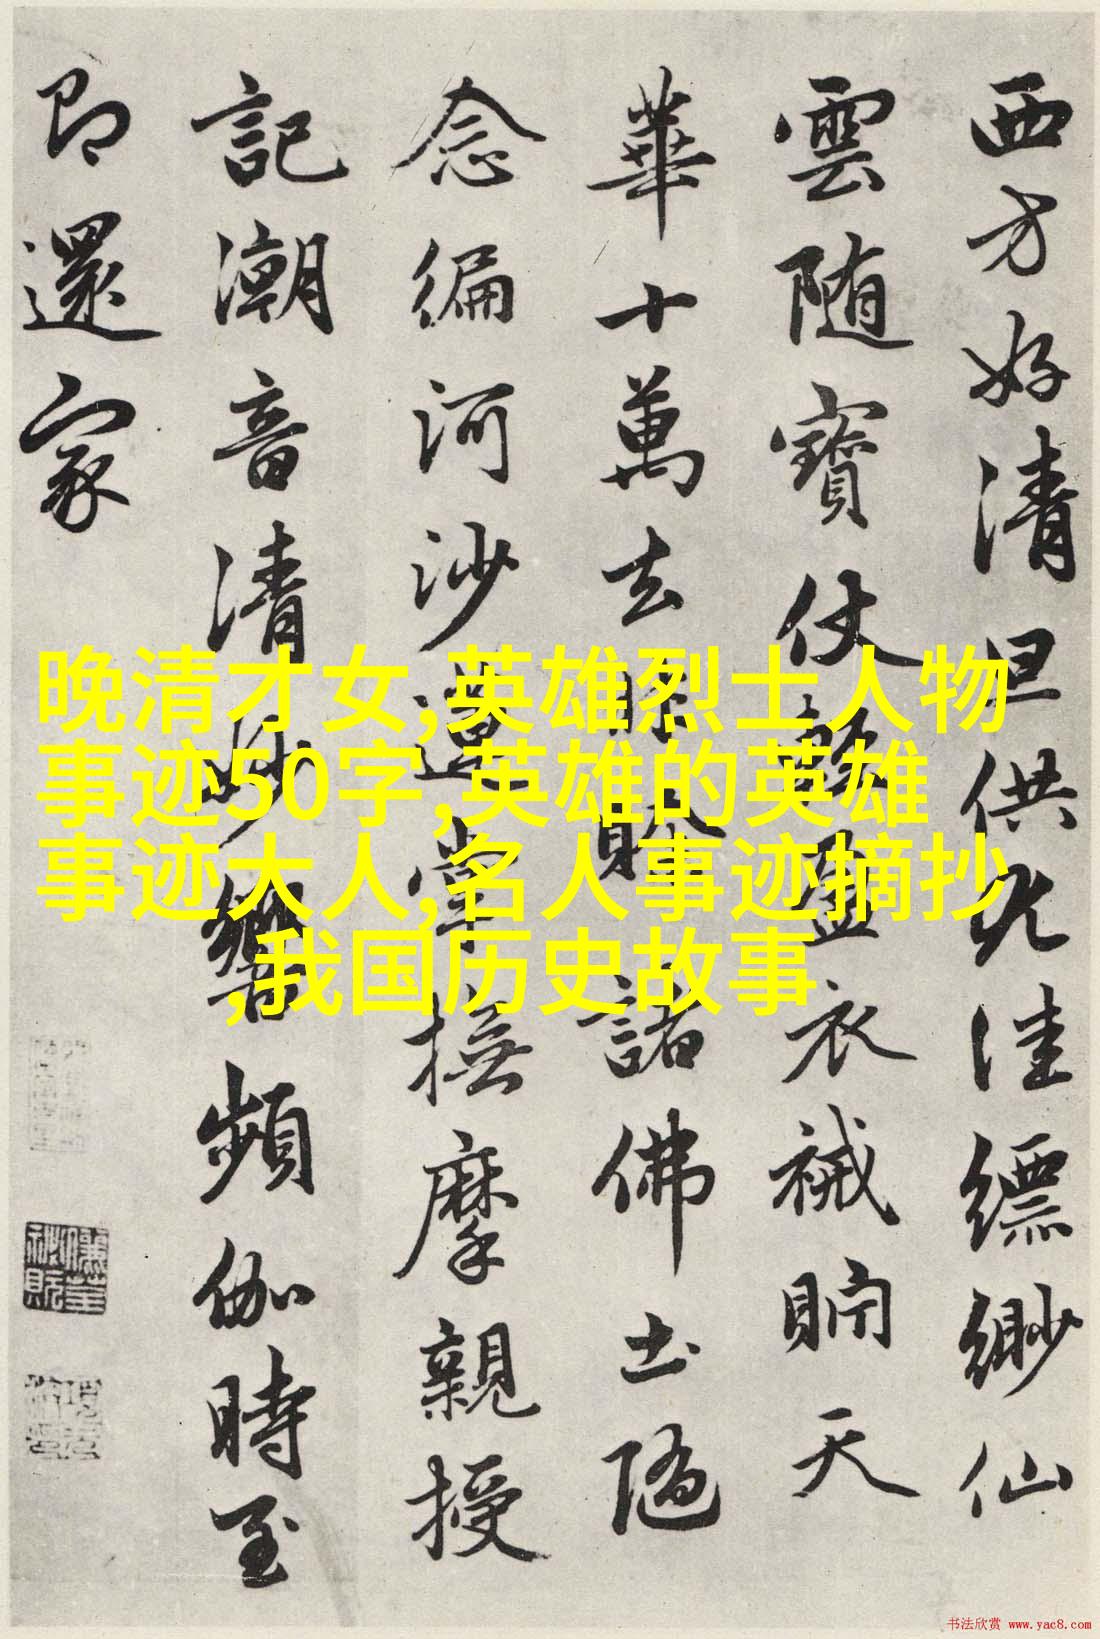 西方好清旦供尤佳縹緲仙
雲随寶仗輕盈衣裓貯天
華十萬去非賒諸佛土隨
念編河沙蓮掌撫摩親授
記潮音清妙響頻伽時至
即還家
晚清才女,英雄烈士人物
事迹50字,英雄的英雄
事迹大人,名人事迹摘抄
,我国历史故事
书法欣赏 www.yac8.com